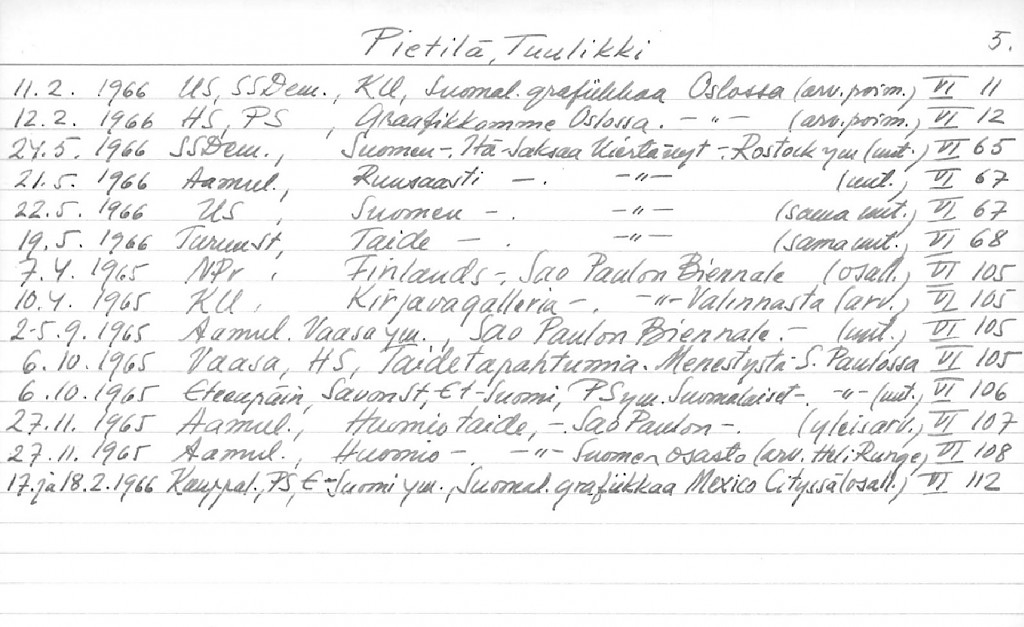 Pietilä, Tuulikki 5.
11.2. 1966 US, SSDem., KU, Suomal. grafiikkaa Oslossa (arv.poim.) VI 11
12.2. 1966 HS, PS , Graafikkomme Oslossa. - " - (arv.poim.) VI 12
24.5. 1966 SSDem., Suomen-. Itä-Saksaa Kiertänyt -. Rostock ym (uut.) VI 65
21.5. 1966 Aamul., Ruusaasti -. - " - (uut.) VI 67
22.5. 1966 US , Suomen -. - " - (sama uut.) VI 67
19.5. 1966 Turunst, Taide -. - " - (sama uut.) VI 68
7.4. 1965 NPr , Finlands -. Sao Paulon Biennale (osall.) VI 105
10.4. 1965 KU , Kirjavagalleria -. - " - Valinnasta (arv.) VI 105
2-5.9. 1965 Aamul. Vaasa ym., Sao Paulon Biennale. - (uut.) VI 105
6.10. 1965 Vaasa, HS, Taidetapahtumia. Menestystä S. Paulossa VI 105
6.10. 1965 Eteenpäin, Savonst, Et-Suomi, PS ym. Suomalaiset -. - " - (uut.) VI 106
27.11. 1965 Aamul., Huomiotaide, -. Sao Paulon -. (yleisarv.) VI 107
27.11. 1965 Aamul., Huomio -. - " - Suomen osasto (arv. Hili-Runge) VI 108
17. ja 18.2. 1966 Kauppal., PS, E-Suomi ym., Suomal. grafiikkaa Mexico Cityssä (osall.) VI 112